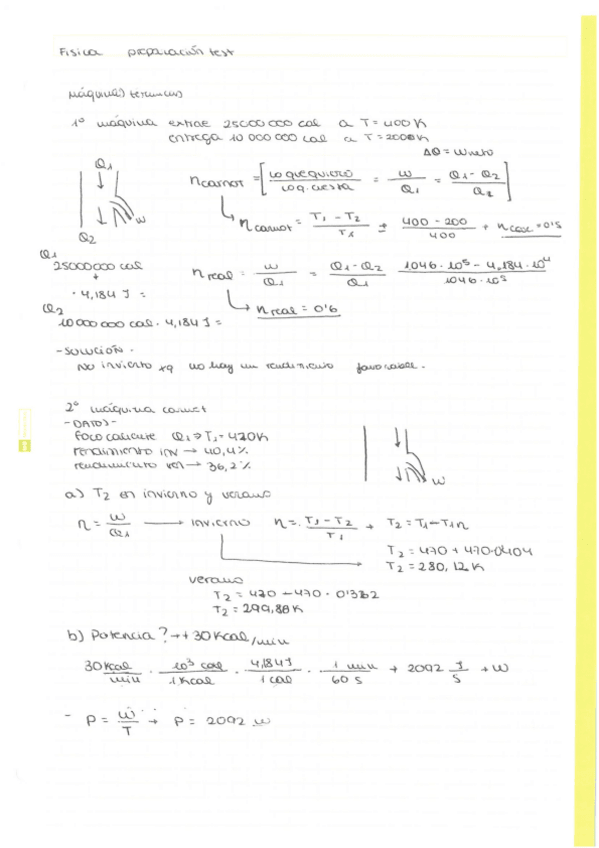 Fisica preparación test
máquinas termicas
1º máquina extrae 25000 000 cal a T = 400 K
entrega 10 000 000 cal a T = 200 K
ΔQ = Wneto
Q1
W
Q2
ηcarnot = [lo que quiero / lo q. cuesta = W / Q1 = Q1 - Q2 / Q2]
↳ ηcarnot = T1 - T2 / T1 = 400 - 200 / 400 → = 0'5
Q1
25000000 cal
· 4,184 J =
Q2
10 000 000 cal · 4,184 J =
ηreal = W / Q1 = Q1 - Q2 / Q1 1046 · 10⁵ - 4,184 · 10⁴ / 1046 · 10⁵
↳ ηreal = 0'6
- SOLUCIÓN -
No invierto xq no hay un rendimiento favorable.
2º máquina carnot
- DATOS -
foco caliente Q1 → T1 = 470 K
rendimiento inv → 40,4 %
rendimiento ver → 36,2 %
W
a) T2 en invierno y verano
η = W / Q1 → invierno η = T1 - T2 / T1 → T2 = T1 - T1η
T2 = 470 + 470 · 0'404
T2 = 280,12 K
verano
T2 = 470 - 470 · 0'362
T2 = 299,88 K
b) Potencia? → + 30 Kcal/min
30 Kcal / min · 10³ cal / 1 Kcal · 4,184 J / 1 cal · 1 min / 60 s → 2092 J / s → W
- P = W / T → P = 2092 W